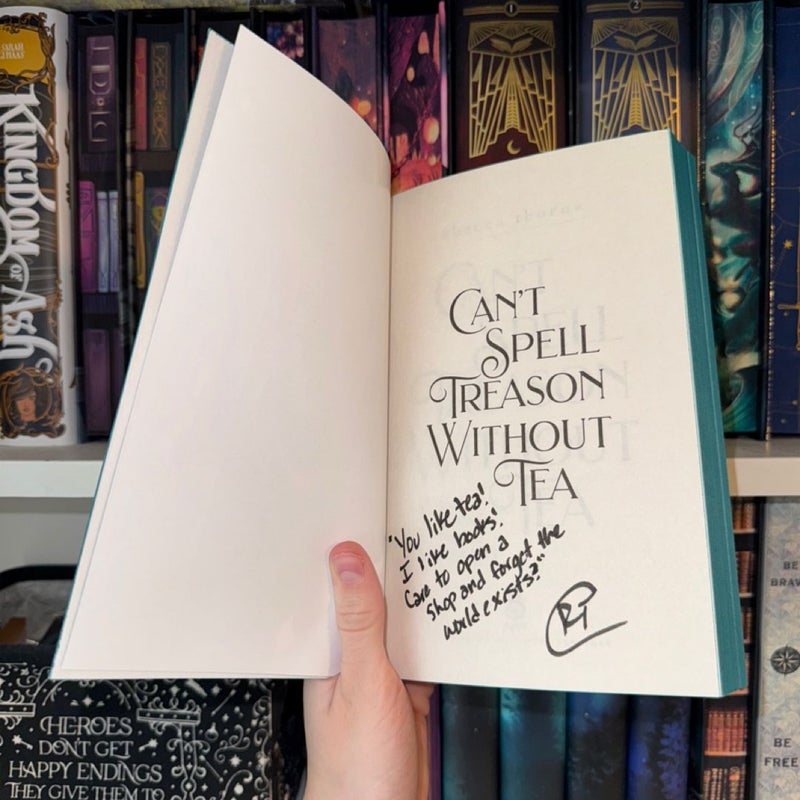 SARAH
J. MAAS
KINGDOM
OF
ASH
1
2
CAN'T
SPELL
TREASON
WITHOUT
TEA
"You like tea!
I like books!
Care to open a
shop and forget the
world exists?"
RT
HEROES
DON'T GET
HAPPY ENDINGS
THEY GIVE THEM TO
BE
BRAV
BE
FREE